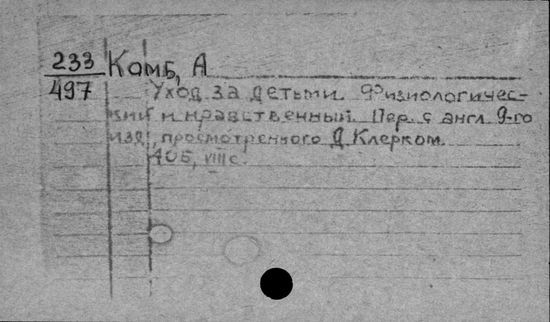 233 Комб, А
497 Уход за детьми. Физиологичес-
кий и нравственный. Пер. с англ. 9-го
изд., просмотренного Д. Клерком.
405, VIII с.